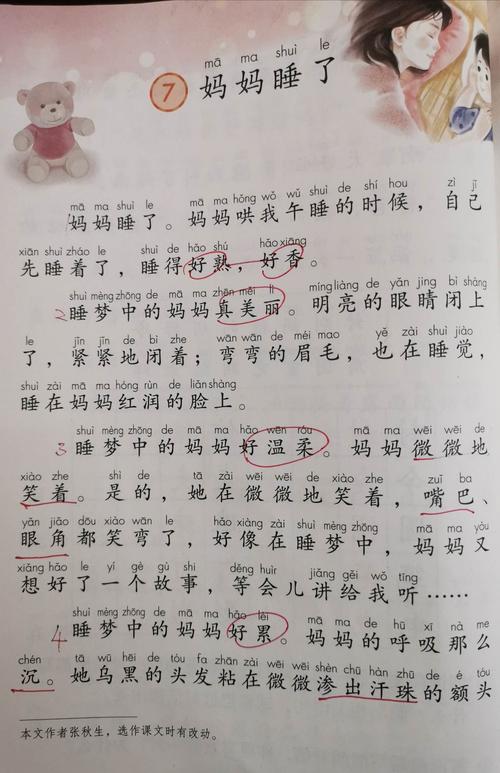 mā ma shuì le
7 妈妈睡了
mā ma shuì le mā ma hǒng wǒ wǔ shuì de shí hou zì jǐ
妈妈睡了。妈妈哄我午睡的时候，自己
xiān shuì zháo le shuì de hǎo shú hǎo xiāng
先睡着了，睡得好熟，好香。
shuì mèng zhōng de mā ma zhēn měi lì míng liàng de yǎn jing bì shàng
2 睡梦中的妈妈真美丽。明亮的眼睛闭上
le jǐn jǐn de bì zhe wān wān de méi mao yě zài shuì jiào
了，紧紧地闭着；弯弯的眉毛，也在睡觉，
shuì zài mā ma hóng rùn de liǎn shàng
睡在妈妈红润的脸上。
shuì mèng zhōng de mā ma hǎo wēn róu mā ma wēi wēi de
3 睡梦中的妈妈好温柔。妈妈微微地
xiào zhe shì de tā zài wēi wēi de xiào zhe zuǐ ba
笑着。是的，她在微微地笑着，嘴巴、
yǎn jiǎo dōu xiào wān le hǎo xiàng zài shuì mèng zhōng mā ma yòu
眼角都笑弯了，好像在睡梦中，妈妈又
xiǎng hǎo le yí gè gù shi děng huìr jiǎng gěi wǒ tīng
想好了一个故事，等会儿讲给我听……
shuì mèng zhōng de mā ma hǎo lèi mā ma de hū xī nà me
4 睡梦中的妈妈好累。妈妈的呼吸那么
chén tā wū hēi de tóu fa zhān zài wēi wēi shèn chū hàn zhū de é tóu
沉。她乌黑的头发粘在微微渗出汗珠的额头
本文作者张秋生，选作课文时有改动。